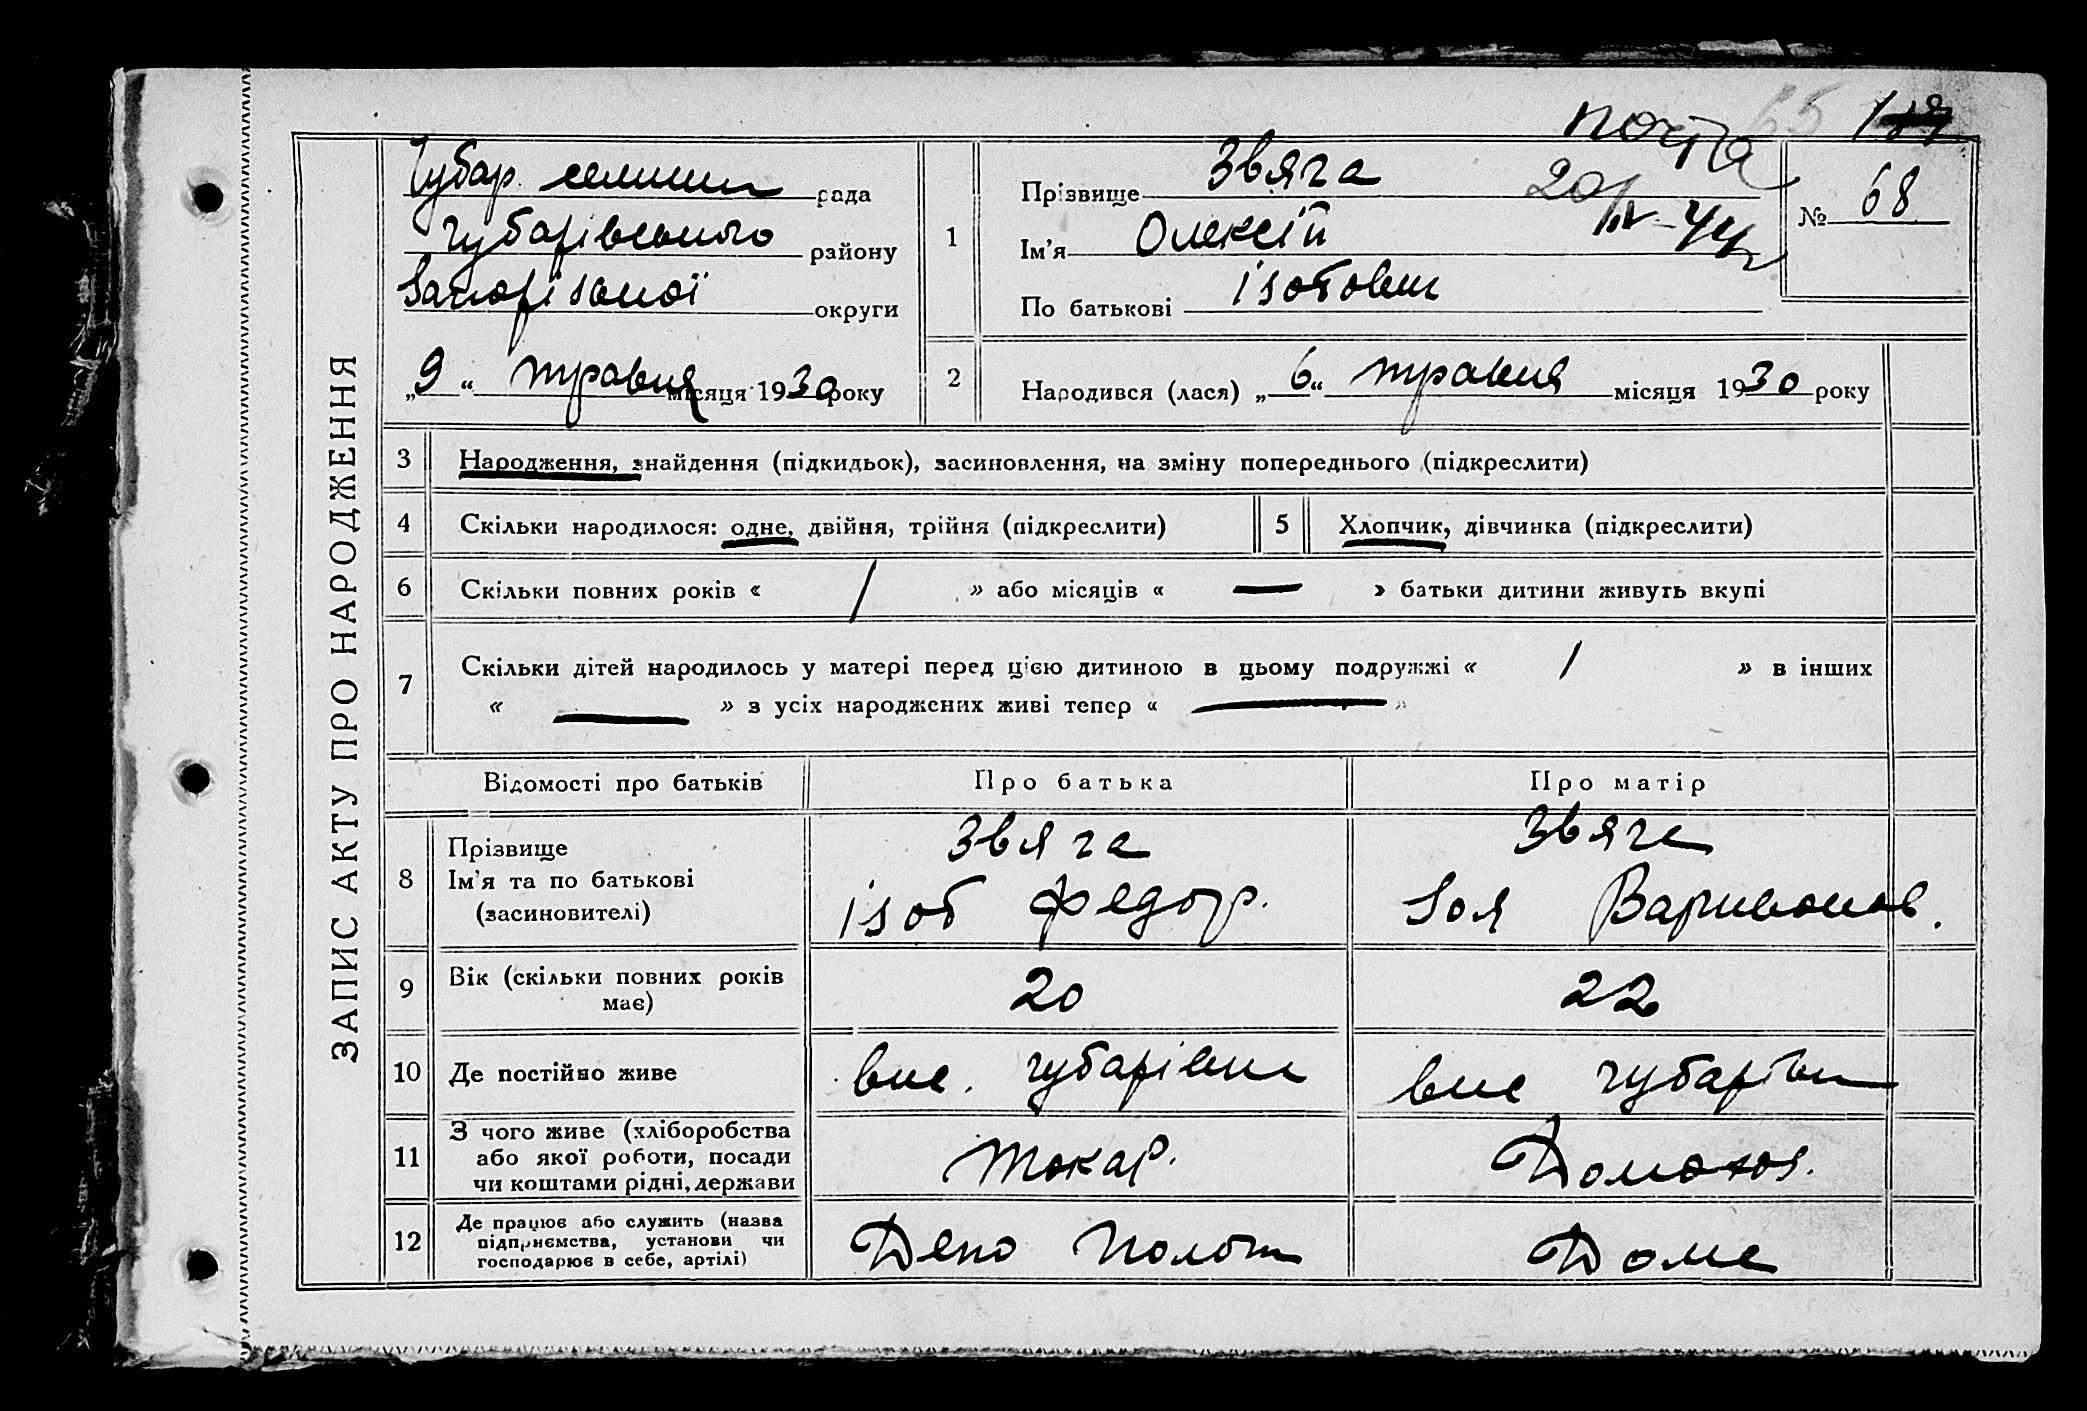 почта 65
ЗАПИС АКТУ ПРО НАРОДЖЕННЯ
Чубар. селищн рада
Чубарівського району
Запорізької округи
„9“ травня місяця 1930 року
1
Прізвище Звяга
Ім'я Олексій
По батькові ізотович
20/IV-44г
№ 68
2 Народився (лася) „6“ травня місяця 1930 року
3 Народження, знайдення (підкидьок), засиновлення, на зміну попереднього (підкреслити)
4 Скільки народилося: одне, двійня, трійня (підкреслити) 5 Хлопчик, дівчинка (підкреслити)
6 Скільки повних років « 1 » або місяців « — » батьки дитини живуть вкупі
7 Скільки дітей народилось у матері перед цією дитиною в цьому подружжі « 1 » в інших
« — » з усіх народжених живі тепер « — »
Відомості про батьків Про батька Про матір
8 Прізвище
Ім'я та по батькові
(засиновителі)
Звяга
ізот Федор.
Звяга
Зоя Варивонов.
9 Вік (скільки повних років
має)
20 22
10 Де постійно живе вис. Чубарівки вис Чубарівки
11 З чого живе (хліборобства
або якої роботи, посади
чи коштами рідні, держави
Токар. Домогос.
12 Де працює або служить (назва
підприємства, установи чи
господарює в себе, артілі)
Депо Пологи Дома